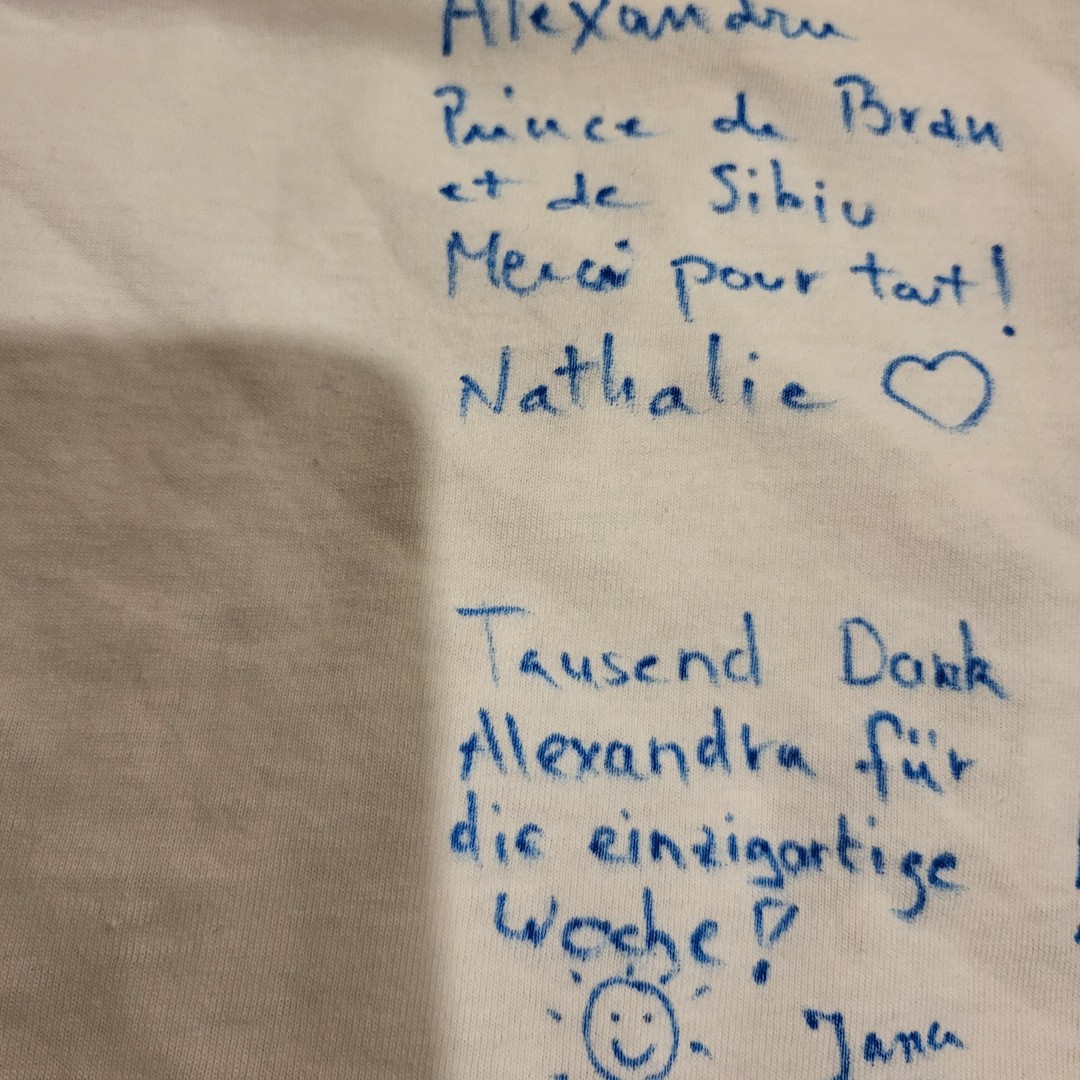 Alexandru
Prince de Bran
et de Sibiu
Merci pour tout!
Nathalie
Tausend Dank
Alexandru für
die einzigartige
Woche!
Jana